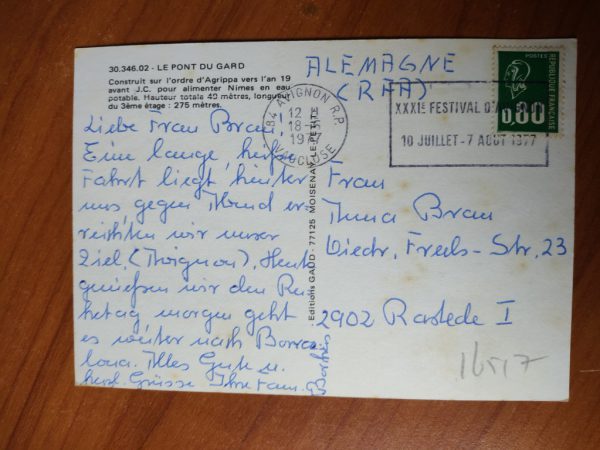 30.346.02 - LE PONT DU GARD
Construit sur l'ordre d'Agrippa vers l'an 19
avant J.C. pour alimenter Nimes en eau
potable. Hauteur totale 40 mètres, longueur
du 3ème étage : 275 mètres.
Liebe Frau Brau!
Eine lange, heiße
Fahrt liegt hinter
uns gegen Abend er-
reichten wir unser
Ziel, (Avignon). Heute
genießen wir den Ru-
hetag morgen geht
es weiter nach Barce
lona. Alles Gute u.
herzl. Grüsse Ihre Fam.
Editions GAUD - 77125 MOISENAY-LE-PETIT
ALEMAGNE
(RFA)
84 AVIGNON R.P.
12 -
18-
1977
VAUCLUSE
XXXIe FESTIVAL
10 JUILLET-7 AOUT 1977
POSTES
REPUBLIQUE FRANCAISE
0,80
Frau
Anna Brau
Diedr. Freels-Str. 23
2902 Rastede I
16517